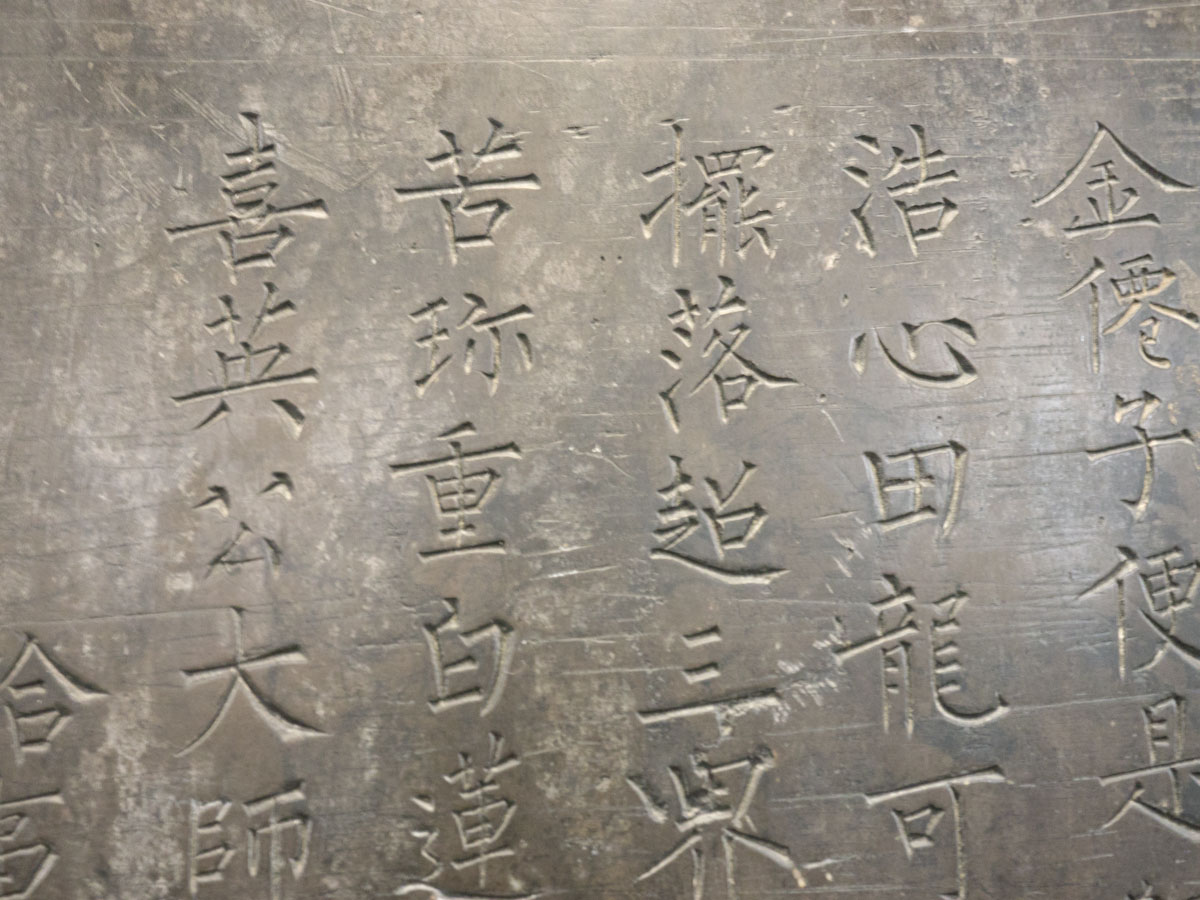 金僊子便是
浩心田龍可
擺落超三界
苦珎重白蓮
喜英公大師
合